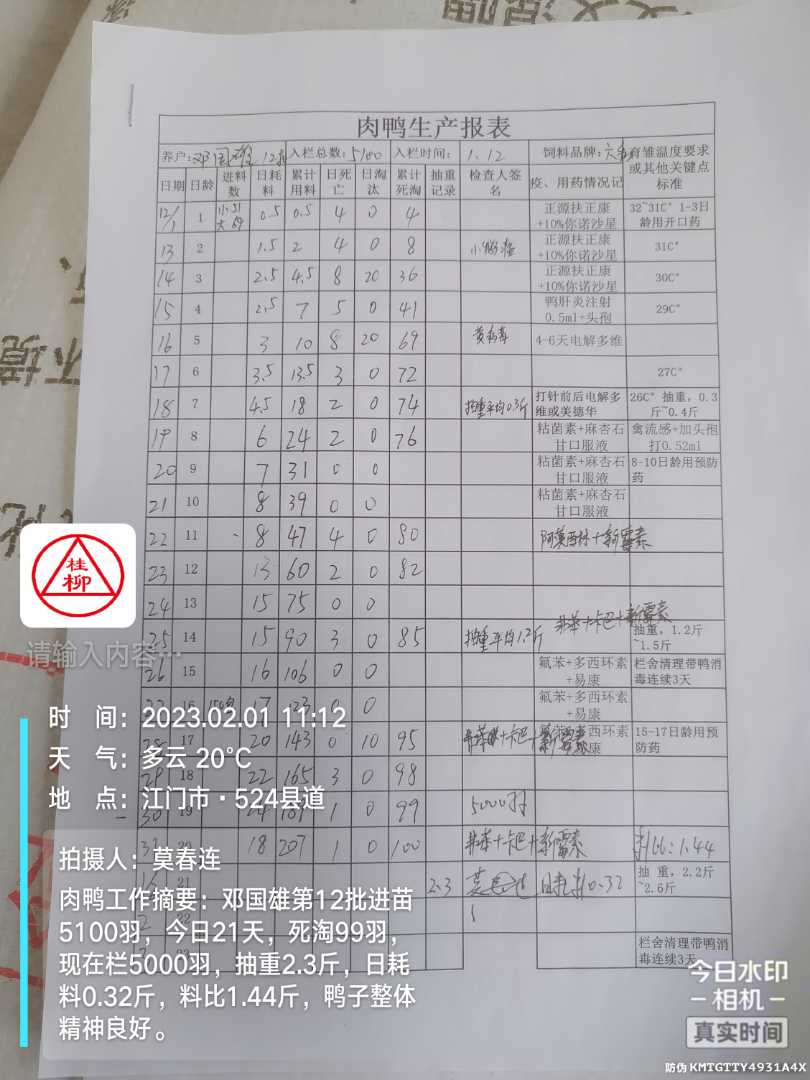 肉鸭生产报表
养户: 邓国雄 12批 入栏总数: 5100 入栏时间: 1.12 饲料品牌: 育雏温度要求或其他关键点标准
日期 日龄 进料数 日耗料 累计用料 日死亡 日淘汰 累计死淘 抽重记录 检查人签名 疫、用药情况记
12/1 1 0.5 0.5 4 0 4 正源扶正康+10%你诺沙星 32~31C° 1-3日龄用开口药
13 2 1.5 2 4 0 8 正源扶正康+10%你诺沙星 31C°
14 3 2.5 4.5 8 20 36 正源扶正康+10%你诺沙星 30C°
15 4 2.5 7 5 0 41 鸭肝炎注射0.5ml+头孢 29C°
16 5 3 10 8 20 69 4-6天电解多维
17 6 3.5 13.5 3 0 72 27C°
18 7 4.5 18 2 0 74 抽重平均0.3斤 打针前后电解多维或美德华 26C° 抽重，0.3斤~0.4斤
19 8 6 24 2 0 76 粘菌素+麻杏石甘口服液 禽流感+加头孢打0.52ml
20 9 7 31 0 0 粘菌素+麻杏石甘口服液 8-10日龄用预防药
21 10 8 39 0 0 粘菌素+麻杏石甘口服液
22 11 8 47 4 0 80 阿莫西林+新霉素
23 12 13 60 2 0 82
24 13 15 75 0 0
25 14 15 90 3 0 85 抽重平均1.2斤 +卡巴+新霉素 抽重，1.2斤~1.5斤
26 15 16 106 0 0 氟苯+多西环素+易康 栏舍清理带鸭消毒连续3天
16 17 123 0 0 氟苯+多西环素+易康
28 17 20 143 0 10 95 +卡巴+新霉素 西环素 康 15-17日龄用预防药
29 18 22 165 3 0 98
30 19 1 0 99 5000羽
18 207 1 0 100 +卡巴+新霉素 料比: 1.44
21 2.3 日耗料0.32 抽重，2.2斤~2.6斤
栏舍清理带鸭消毒连续3天
桂柳
请输入内容…
时 间: 2023.02.01 11:12
天 气: 多云 20°C
地 点: 江门市·524县道
拍摄人: 莫春连
肉鸭工作摘要: 邓国雄第12批进苗
5100羽，今日21天，死淘99羽，
现在栏5000羽，抽重2.3斤，日耗
料0.32斤，料比1.44斤，鸭子整体
精神良好。
今日水印
相机
真实时间
防伪 KMTGTTY4931A4X